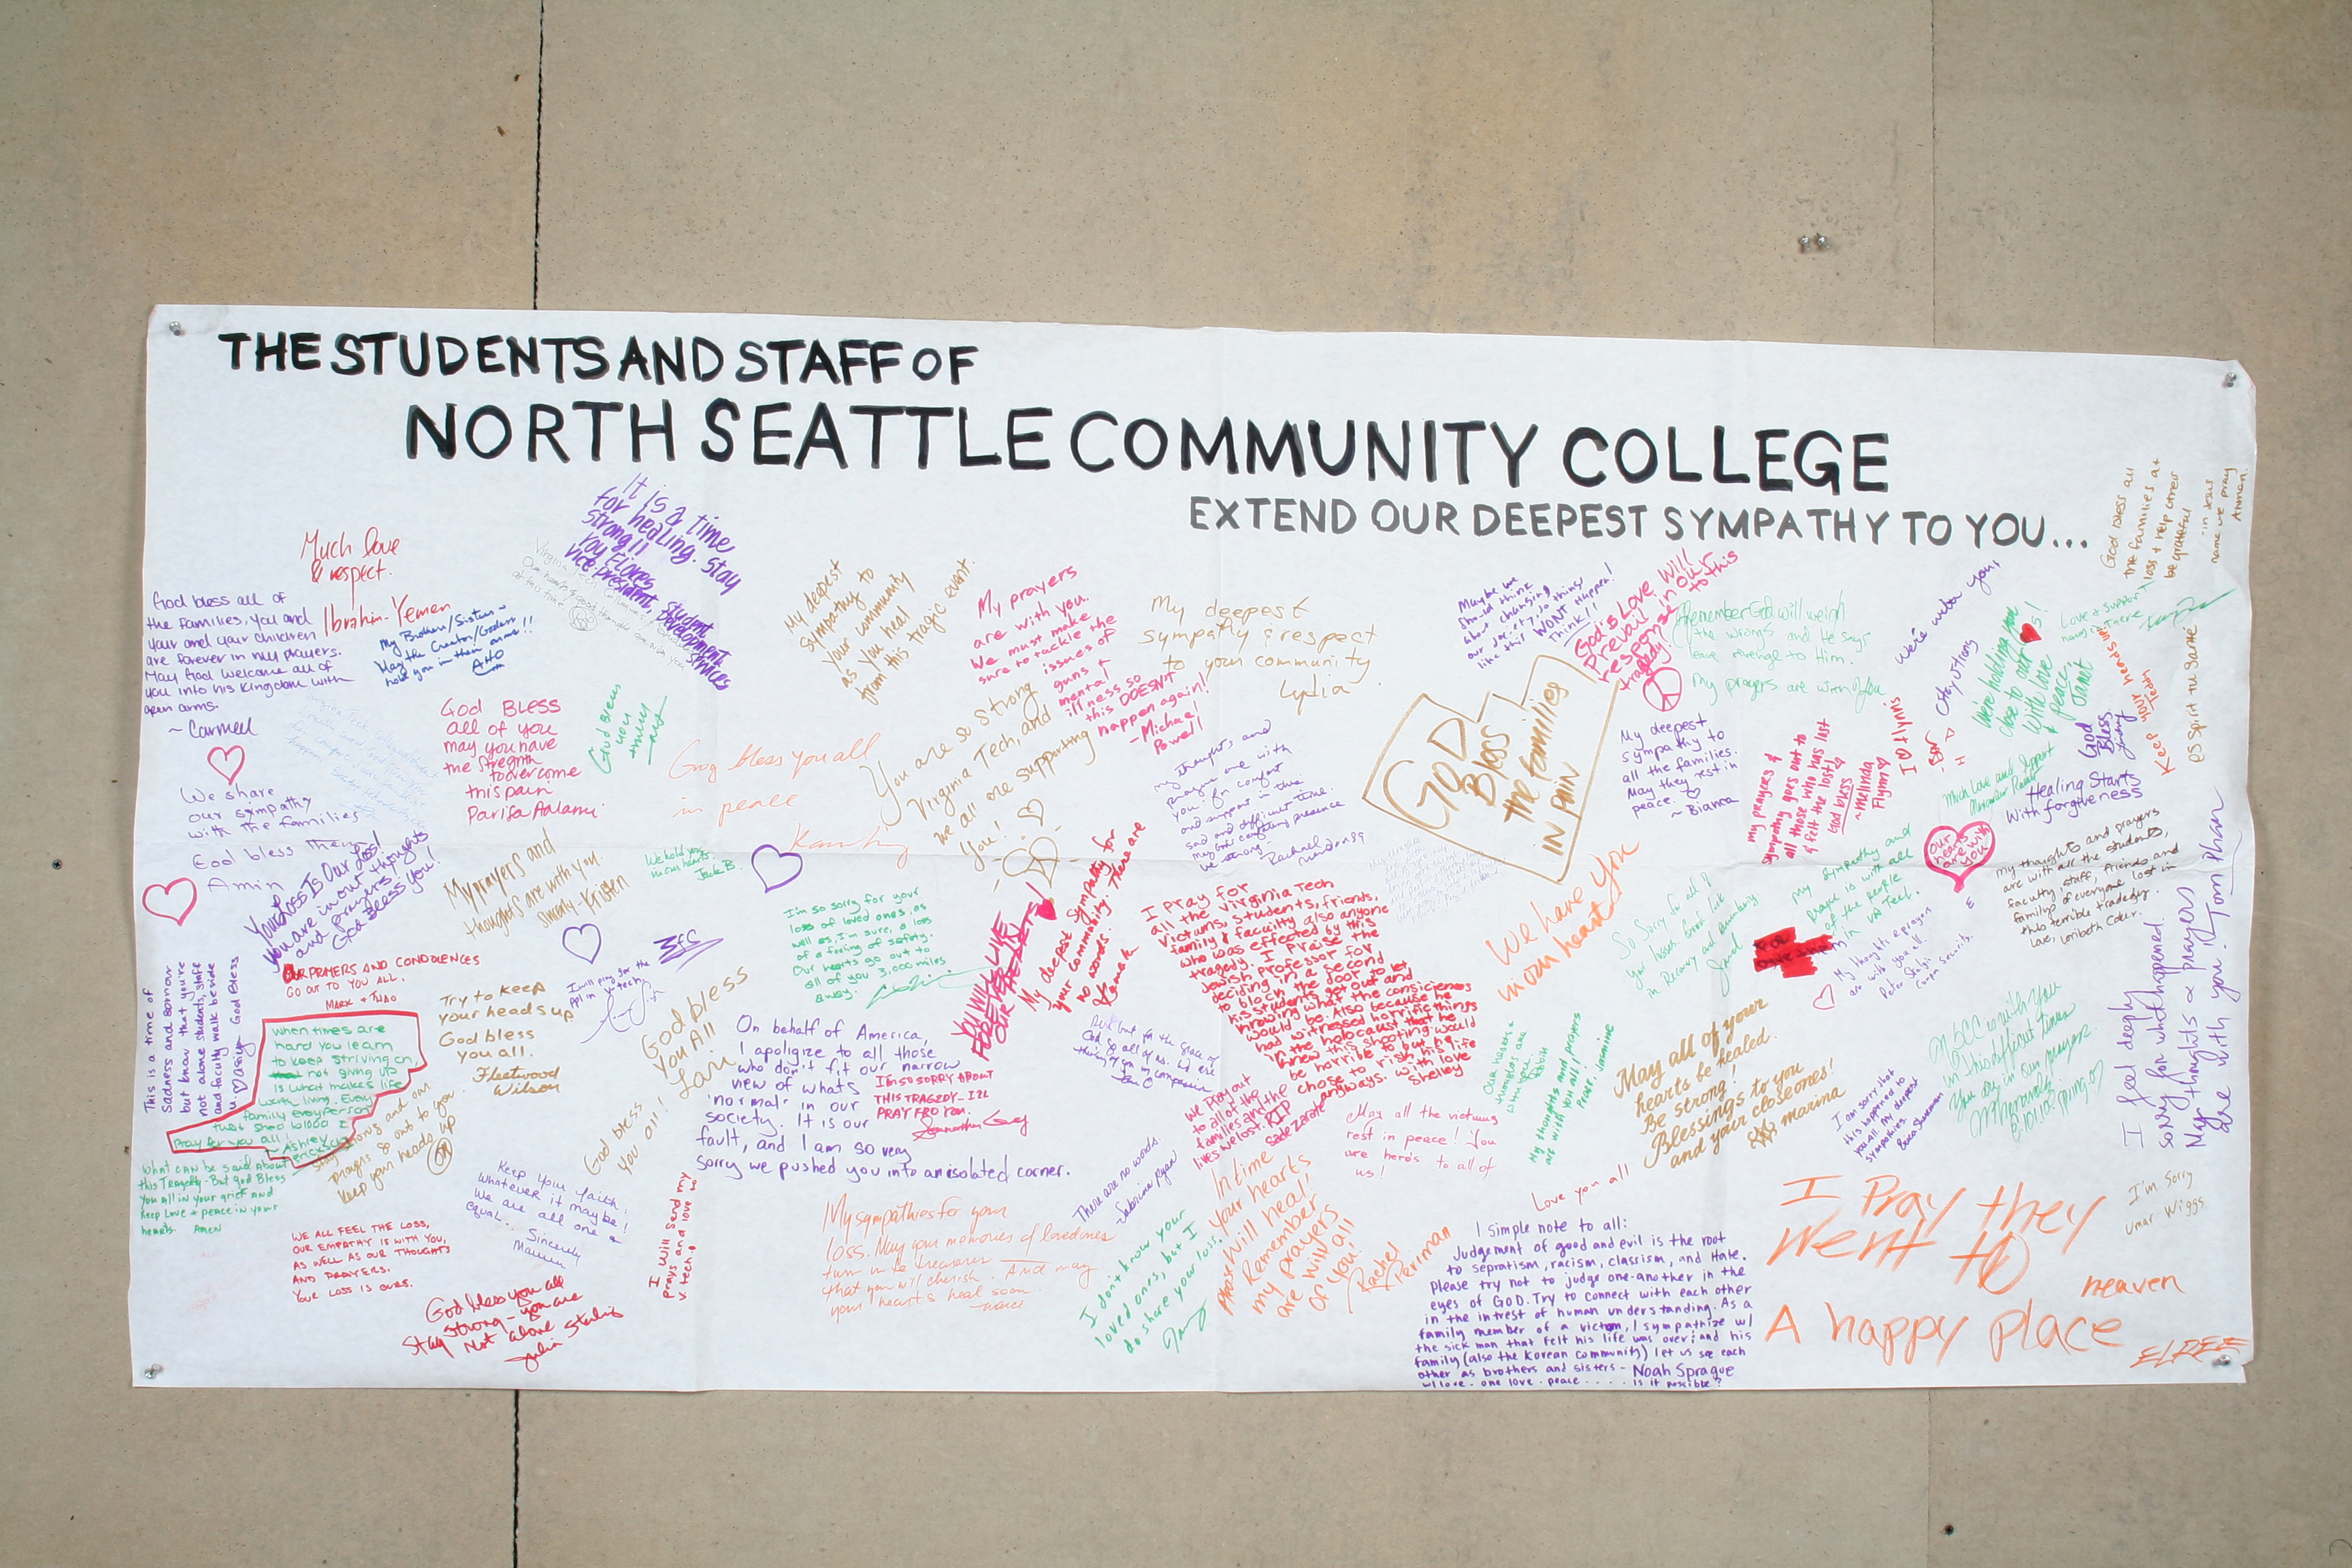 THE STUDENTS AND STAFF OF
NORTH SEATTLE COMMUNITY COLLEGE
EXTEND OUR DEEPEST SYMPATHY TO YOU...
Much love
& respect.
Ibrahim-Yemen
God bless all of
the families, you and
your and your children
are forever in my prayers.
May God welcome all of
you into his Kingdom with
open arms.
~ Carmell
My Brothers/Sisters~
May the Creator/Goddess
hold you in their arms!!
AHO
It is a time
for healing. Stay
strong!!
Vice-president, Student
Development
Services
GOD BLESS
all of you
may you have
the stregnth
to overcome
this pain
Parisa Aalami
God bless
you
My deepest
sympathy to
your community
as you heal
from this tragic event.
My prayers
are with you.
We must make
sure to tackle the
issues of
guns &
mental
illness so
this DOESN'T
happen again!
-Michael
Powell
My deepest
sympathy & respect
to your community
Lydia
Maybe we
should think
about changing
our society, so things
like this WONT Happen!
Think!!
God's Love Will
Prevail in our
response to this
tragedy!
Remember God will weigh
the wrongs and He says
leave revenge to Him.
My prayers are with you
We're with you,
God bless all
the families at
loss & help other
be grateful
in Jesus
name we pray
Amman.
We're holding you
close to our
with love
& peace,
Janet
Love & support
Keep your heads up
God
Bless
Healing Start
With forgiveness
Much Love and Support
We share
our sympathy
with the families
God bless them
Amin
Your Loss Is Our Loss!
You are in our thoughts
and prayers!
God Bless You!
My prayers and
thoughts are with you.
-Kristen
God bless you all
in peace
We hold you
in our hearts
Jack B.
You are so strong
Virginia Tech, and
we all are supporting
you!
My thoughts and
prayers are with
you. In comfort
and support in this
sad and difficult time.
GOD
Bless
the families
IN PAIN
My deepest
sympathy to
all the families.
May they rest in
peace.
~ Bianca
my prayers &
sympathy goes out to
all those who has lost
& felt the lost!
God bless
~Melinda
Flynn
our
hearts
are with
you
My thoughts and prayers
are with all the students,
faculty, staff, friends and
familys of everyone lost in
this terrible tradedgy.
Love, Loribeth Coker.
OUR PRAYERS AND CONDOLENCES
GO OUT TO YOU ALL.
MARK & THAO
I'm so sorry for your
loss of loved ones, as
well as, I'm sure, a loss
of a feeling of safety.
Our hearts go out to
all of you 3,000 miles
away.
YOU WILL LIVE
FOREVER IN
OUR HEARTS!
My deepest sympathy for
your community. There are
no words.
I pray for
all the Virginia Tech
victims, students, friends,
family & faculity also anyone
who was effected by this
tragedy. I praise the
Jewish professor for
deciding in a second
to block the door to let
his students get out and
knowing what the consiciences
would be. Also because he
had witressed horrific things
in the holocaust that he
knew this shooting would
be horrible to but he
chose to risk his life
anyways. With love
Shelley
We have you
in our heart
So Sorry for all of
your losses. Good luck
in Recovery and
My sympathy and
is with all
of the people
in VA Tech.
My thoughts & prayers
are with you all.
This is a time of
Sadness and Sorrow
but know that you're
not alone students, staff
and faculty walk beside
u. God Bless
when times are
hard you learn
to keep striving on,
not giving up
is what makes life
worth living. Every
family every person
that shed blood I
Pray for you all!
~Ashley
Erickson
Try to keep
your heads up
God bless
you all.
Fleetwood
Wilson
I will pray for the
ppl in V-tech.
God bless
You All
Lori
God bless
you all!
On behalf of America,
I apoligize to all those
who don't fit our narrow
view of whats
'normal' in our
society. It is our
fault, and I am so very
sorry we pushed you into an isolated corner.
I'M SO SORRY ABOUT
THIS TRAGEDY - I'LL
PRAY FRO YOU.
we pray out
to all of the
families and the
lives we lost. RIP
May all the victums
rest in peace! You
are hero's to all of
us!
Our hearts &
thoughts are
with you.
Robin
My thoughts and prayers
are with you all!
Peace, Jasmine
May all of your
hearts be healed.
Be strong!
Blessings to you
and your close ones!
marina
I am sorry that
this happened to
you all. My deepest
sympathies.
NSCC is with you
in this difficult times
You are in our prayers.
I feel deeply
sorry for what happened.
May thoughts & prayers
are with you. Tom Phan
What can be said about
this Tragedy - But god Bless
You all in your grief and
Keep Love & peace in your
hearts. Amen
Stay strong and our
prayers go out to you
Keep your heads up
WE ALL FEEL THE LOSS,
OUR EMPATHY IS WITH YOU,
AS WELL AS OUR THOUGHTS
AND PRAYERS.
YOUR LOSS IS OURS.
Keep your faith.
Whatever it maybe!
We are all one &
equal...
Sincerely
God bless you all
Stay strong - you are
Not alone
I will send my
prays and love to
v. tech.
My sympathies for your
loss. May your memories of lovedones
turn into treasures
that you will cherish. And may
your hearts heal soon.
There are no words.
-Sabrina Ryan
I don't know your
loved ones, but I
do share your loss.
In time
Your hearts
will heal!
Please Remember
my prayers
are with all
of you!
Rachel
Perlman
Love you all
1 simple note to all:
Judgement of good and evil is the root
to sepratism, racism, classism, and Hate.
Please try not to judge one-another in the
eyes of GOD. Try to connect with each other
in the intrest of human understanding. As a
family member of a victim, I sympathize w/
the sick man that felt his life was over; and his
family (also the Korean community) let us see each
other as brothers and sisters - Noah Sprague
w/ love - one love - peace ..... Is it possible?
I Pray they
Went to
heaven
A happy place
ELREE
I'm Sorry
Umar Wiggs